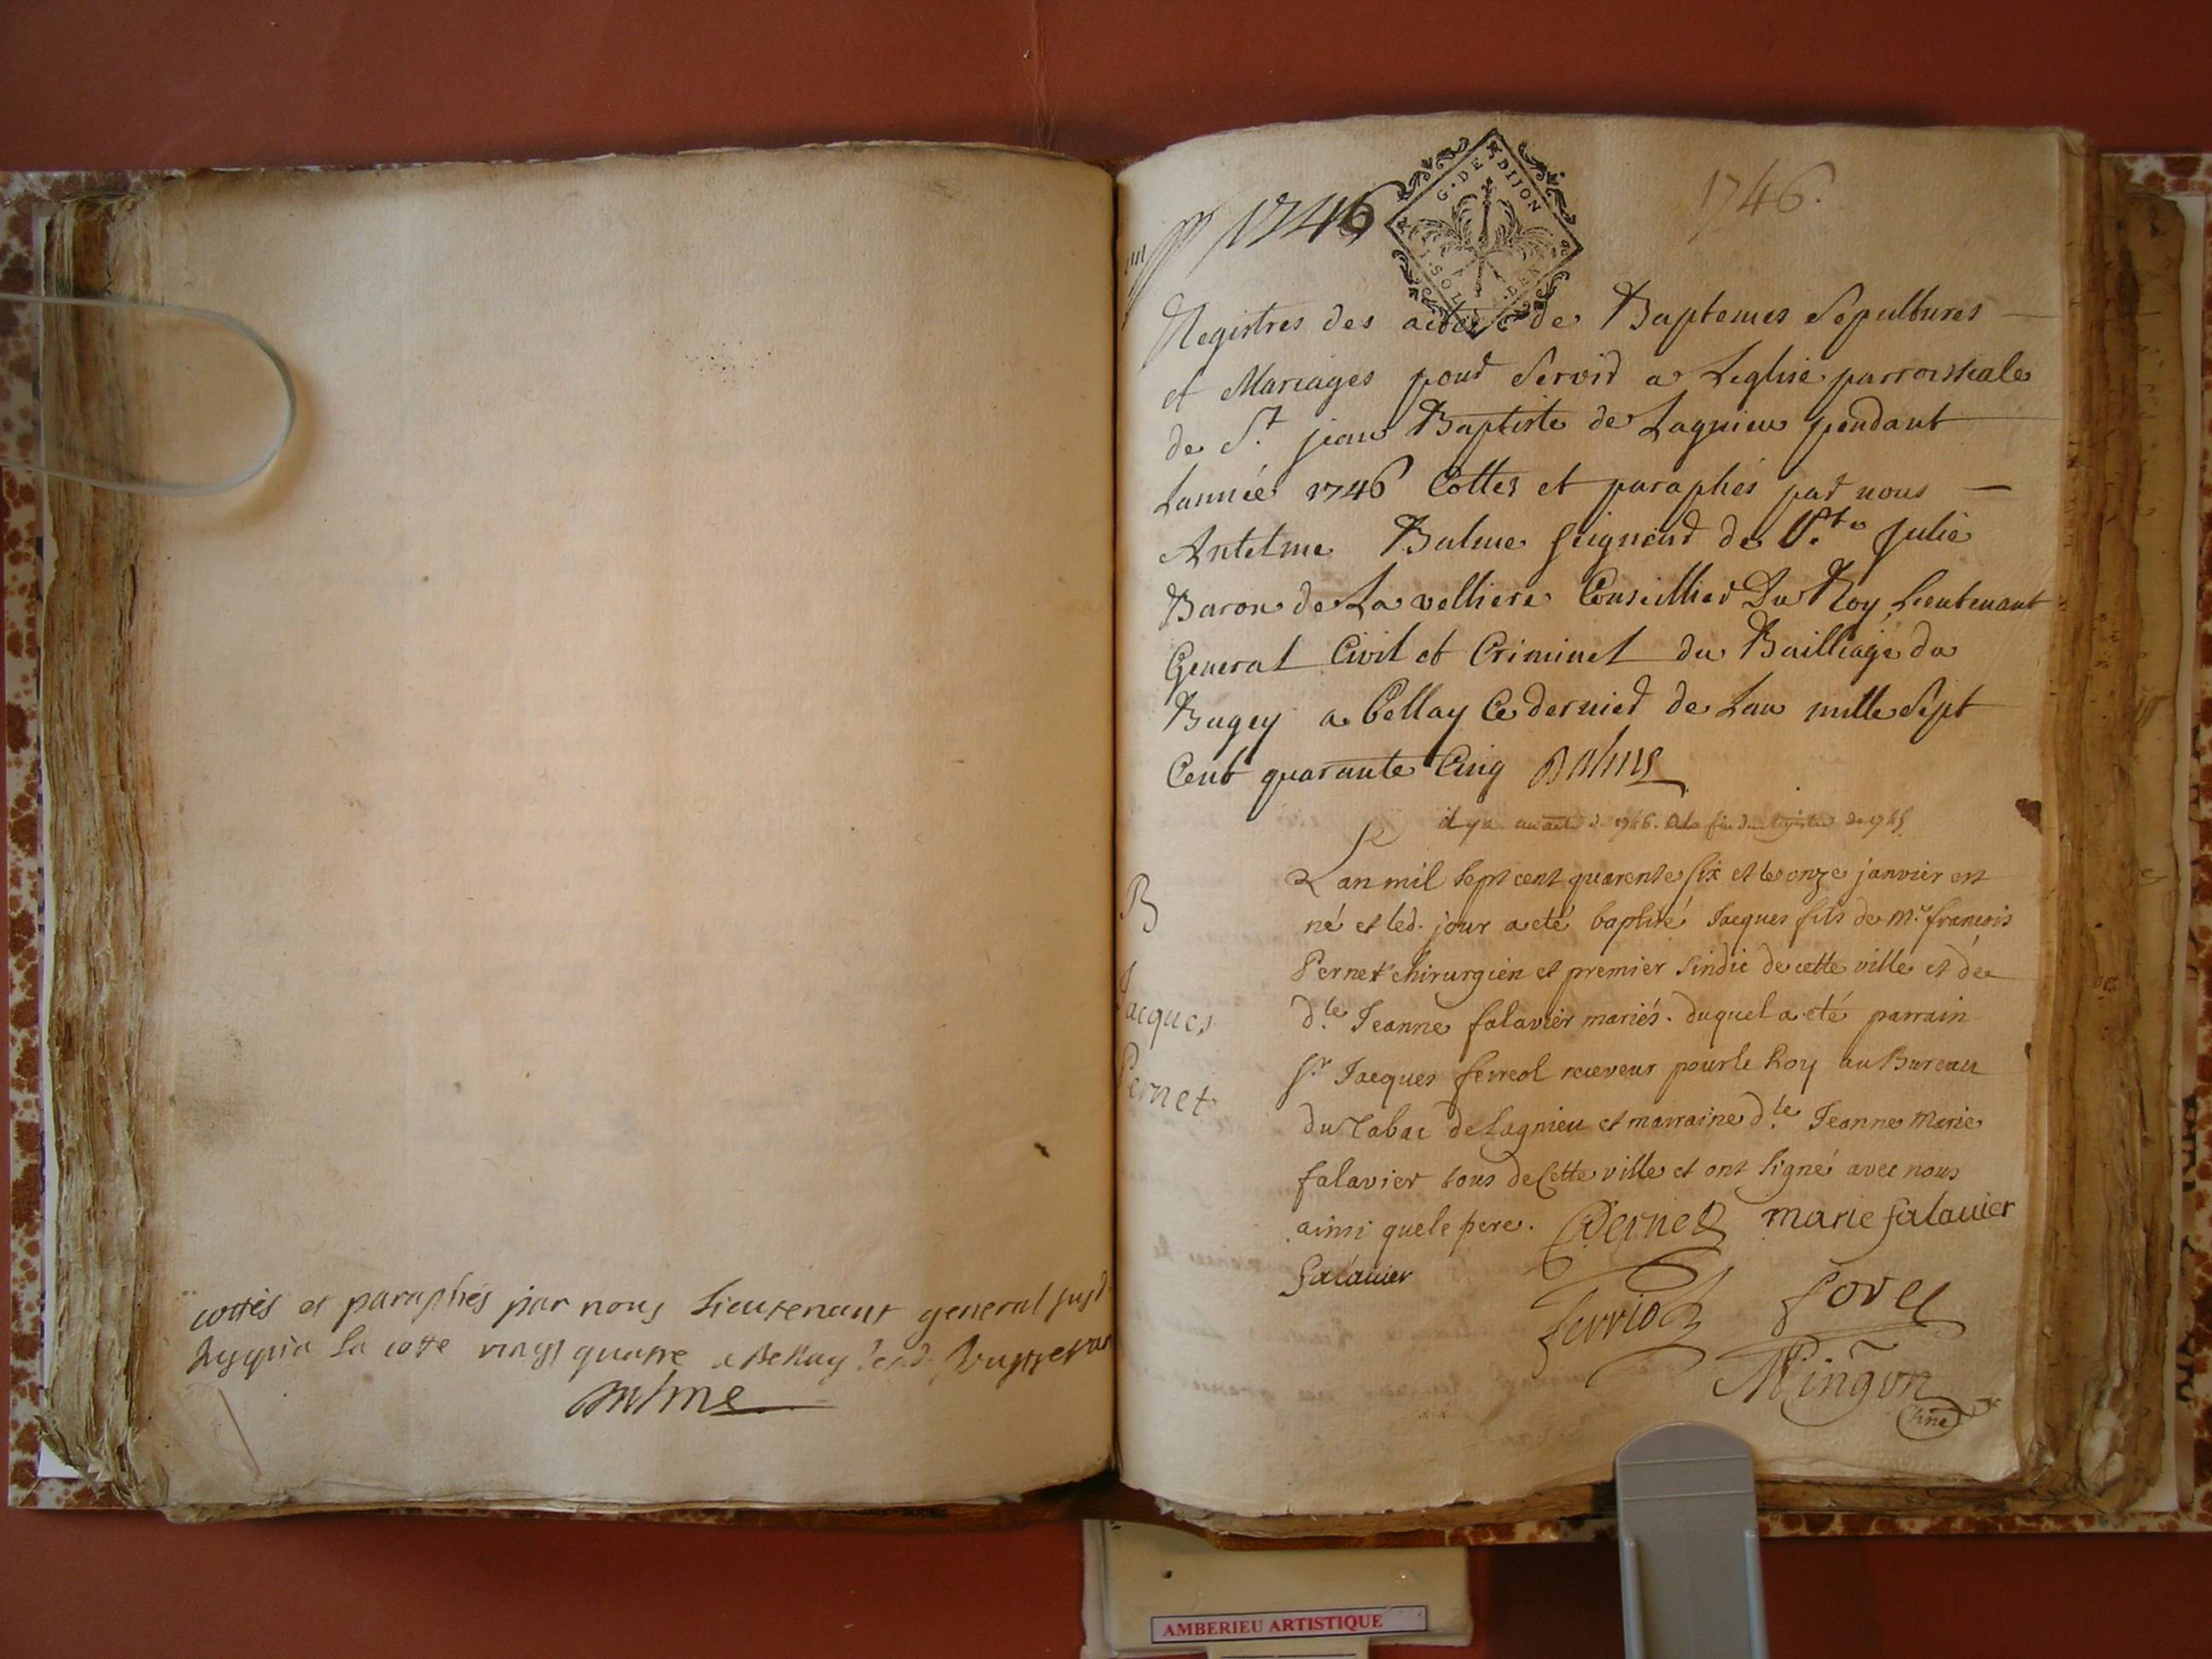 cottés et paraphés par nous Lieutenant general
la cotte vingt quatre a Bellay
Balme
1746
G. DE DIJON
SOL
1746.
Registres des actes de Baptemes Sepultures
et Mariages pour Servir a Leglise parroissiale
de St. jean Baptiste de Lagnieu pendant
Lannée 1746 Cottes et paraphés par nous
Antelme Balme seigneur de Ste. Julie
Baron de La velliere Conseillier Du Roy Lieutenant
General Civil et Criminel du Bailliage du
Bugey a Bellay Ce dernier de Lan mille Sept
Cent quarante Cinq Balme
il y a un acte de 1746. a la fin du registre de 1745.
B
Jacques
Pernet
Lan mil sept cent quarente six et le onze janvier est
né et led. jour a eté baptisé Jacques fils de Mr. francois
Pernet chirurgien et premier sindic de cette ville et de
dle. Jeanne falavier mariés. duquel a eté parrain
sr. Jacques ferreol receveur pour le Roy au Bureau
du Tabac de Lagnieu et marraine dle. Jeanne Marie
falavier tous de Cette ville et ont signé avec nous
ainsi que le pere. Pernet marie falavier
falavier
ferriol
Mingon
AMBERIEU ARTISTIQUE